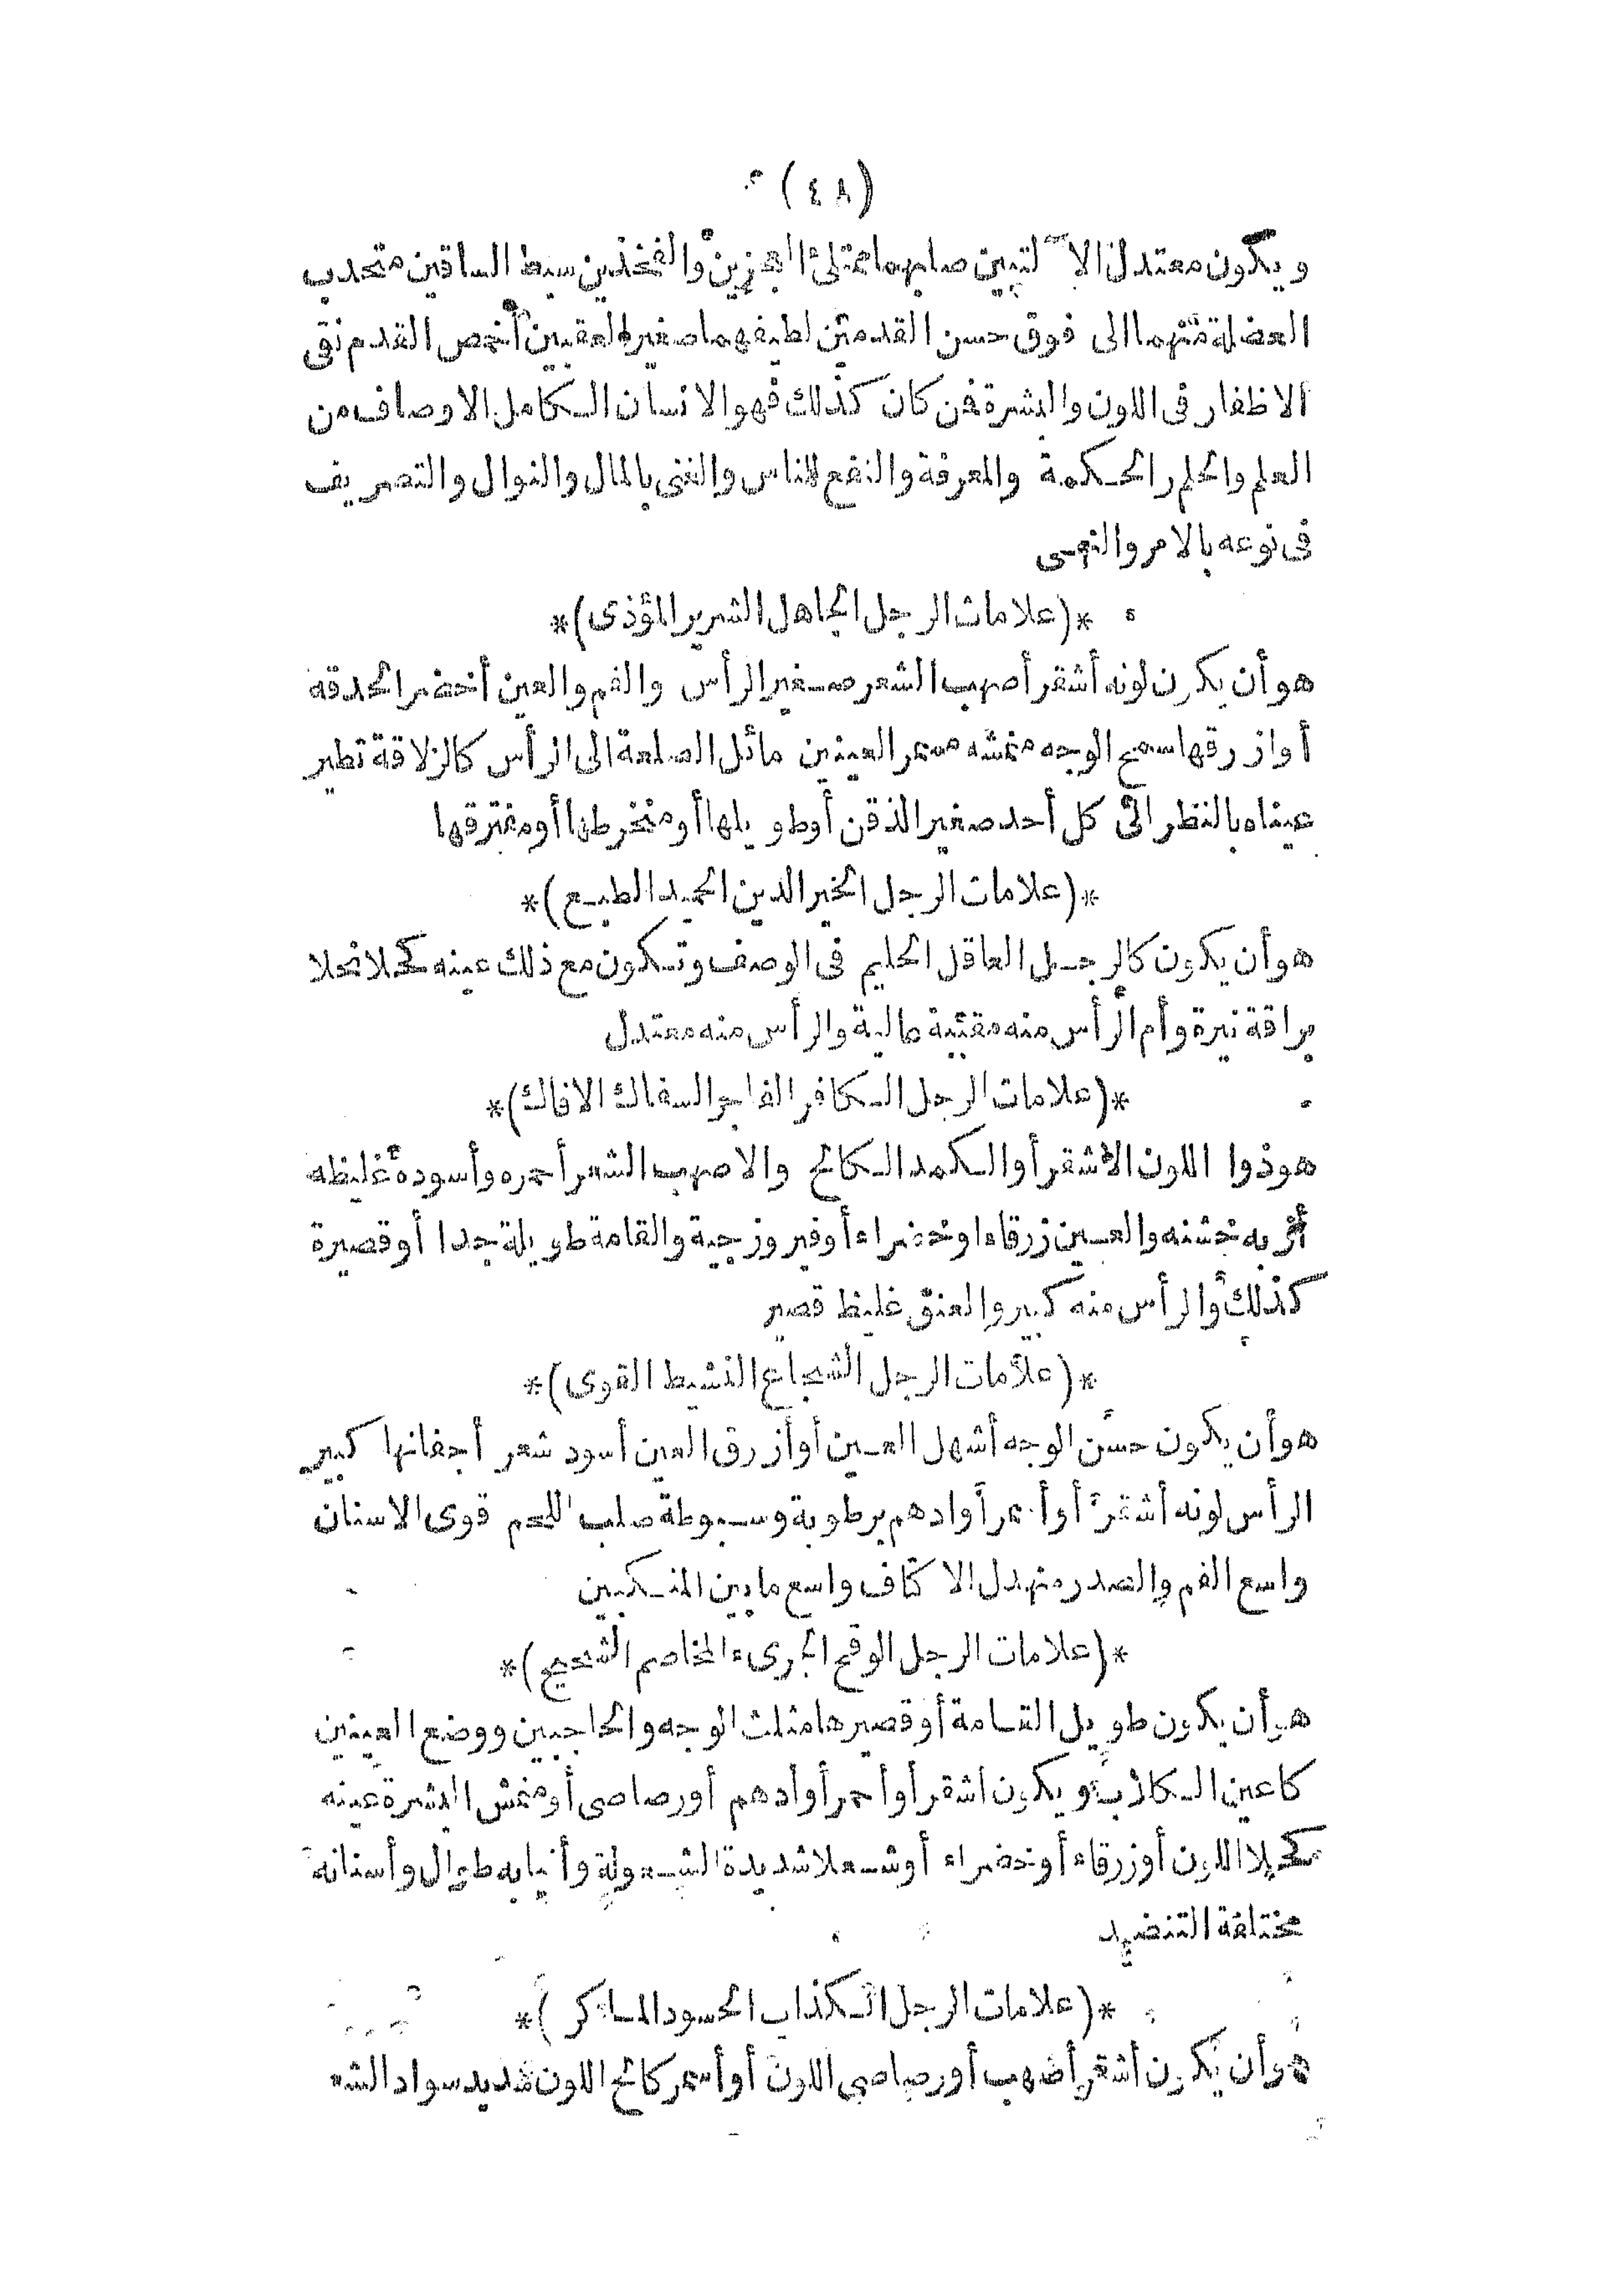 (٤٨)
ويكون معتدل الاليتين صلبهما ممتلئ العجزين والفخذين سبط الساقين متحدب
العضلة منهما الى فوق حسن القدمين لطيفهما صغير العقبين أخمص القدم نقى
الاظفار فى اللون والبشرة فمن كان كذلك فهو الانسان الكامل الاوصاف من
العلم والحلم والحكمة والمعرفة والنفع للناس والغنى بالمال والنوال والتصريف
فى نوعه بالامر والنهى
*(علامات الرجل الجاهل الشرير المؤذى)*
هو أن يكون لونه أشقر أصهب الشعر صغير الرأس والفم والعين أخضر الحدقه
أوازرقها سمج الوجه مغشه العينين مائل الصلعة الى الرأس كالزلاقة تطير
عيناه بالنظر الى كل أحد صغير الذقن أوطويلها أو منخرطها أو مفترقها
*(علامات الرجل الخير الدين الجيد الطبع)*
هو أن يكون كالرجل العاقل الحليم فى الوصف وتكون مع ذلك عينه كحلا نجلا
براقة نيرة وأم الرأس منه مقبية عالية والرأس منه معتدل
*(علامات الرجل الكافر الفاجر السفاك الافاك)*
هو ذوا اللون الاشقر أو الكمد الكالح والاصهب الشعر أحمره وأسوده غليظه
خشنه والعين زرقاء اوخضراء أوفيروزجية والقامة طويلة جدا أو قصيرة
كذلك والرأس منه كبير والعنق غليظ قصير
*(علامات الرجل الشجاع النشيط القوى)*
هو أن يكون حسن الوجه أشهل العين أوأزرق العين أسود شعر أجفانها كبير
الرأس لونه أشقر أو أسمر أوادهم برطوبة وسبوطة صلب اللحم قوى الاسنان
واسع الفم والصدر منهدل الاكتاف واسع مابين المنكبين
*(علامات الرجل الوقح الجرىء المخاصم الشحيح)*
هو أن يكون طويل القامة أو قصيرها مثلث الوجه والحاجبين ووضع العينين
كاعين الكلاب ويكون اشقر أو أحمر أوأدهم أورصاصى أو منمش البشرة عينه
كحلا اللون أوزرقاء أوخضراء أوشعلا شديدة الشعولة وأنيابه طوال وأسنانه
مختلفة التنضيد
*(علامات الرجل الكذاب الحسود الماكر)*
هو أن يكون أشقر أصهب أورصاصى اللون أو أسمر كالح اللون شديد سواد الشعر